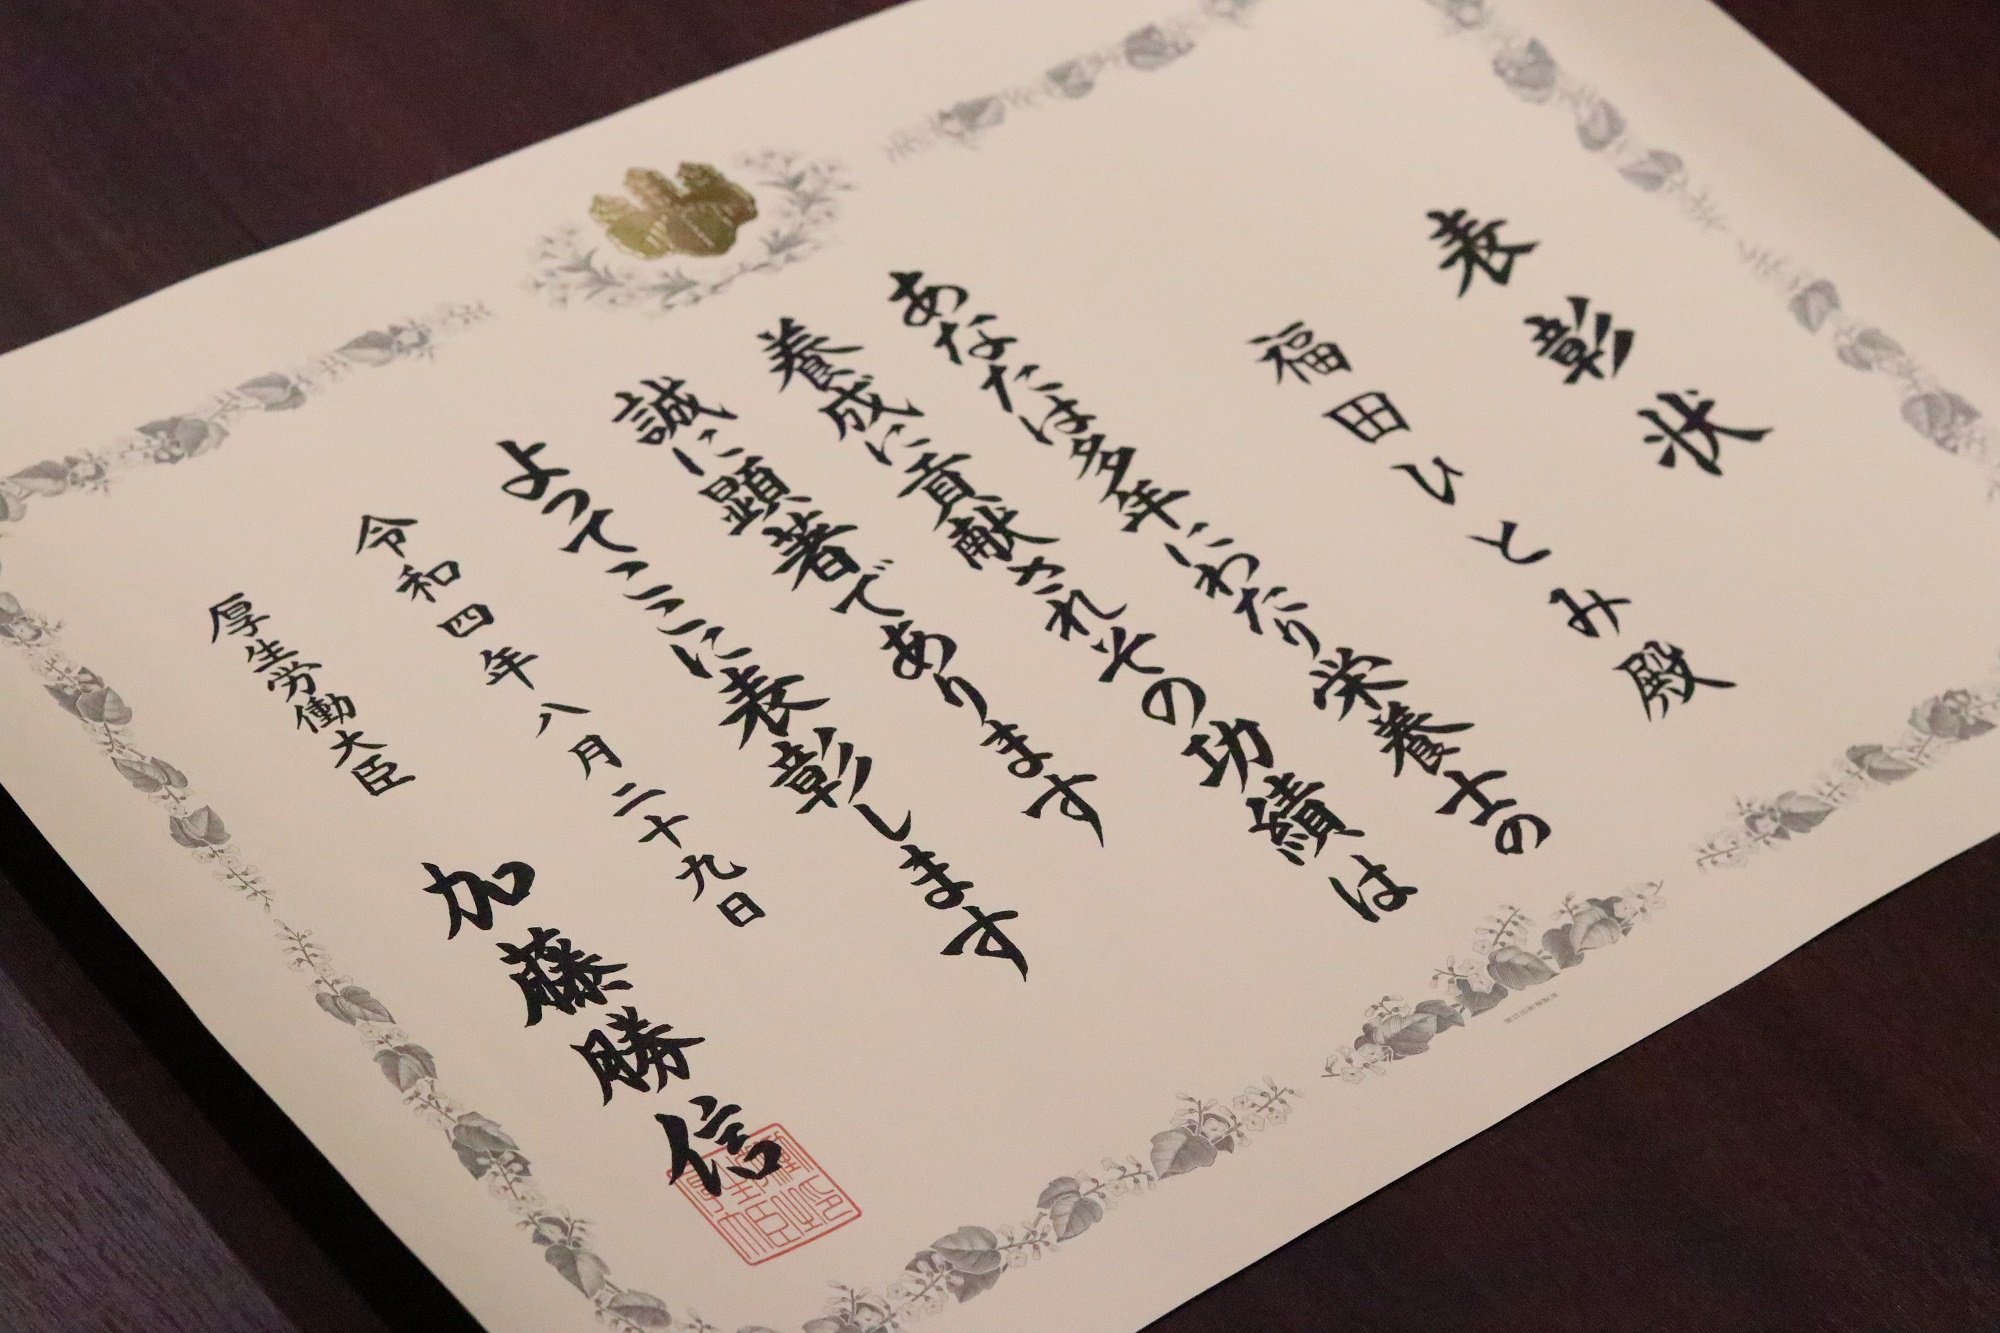 表彰状
福田ひとみ殿
あなたは多年にわたり栄養士の
養成に貢献されその功績は
誠に顕著であります
よってここに表彰します
令和四年八月二十九日
厚生労働大臣
加藤勝信